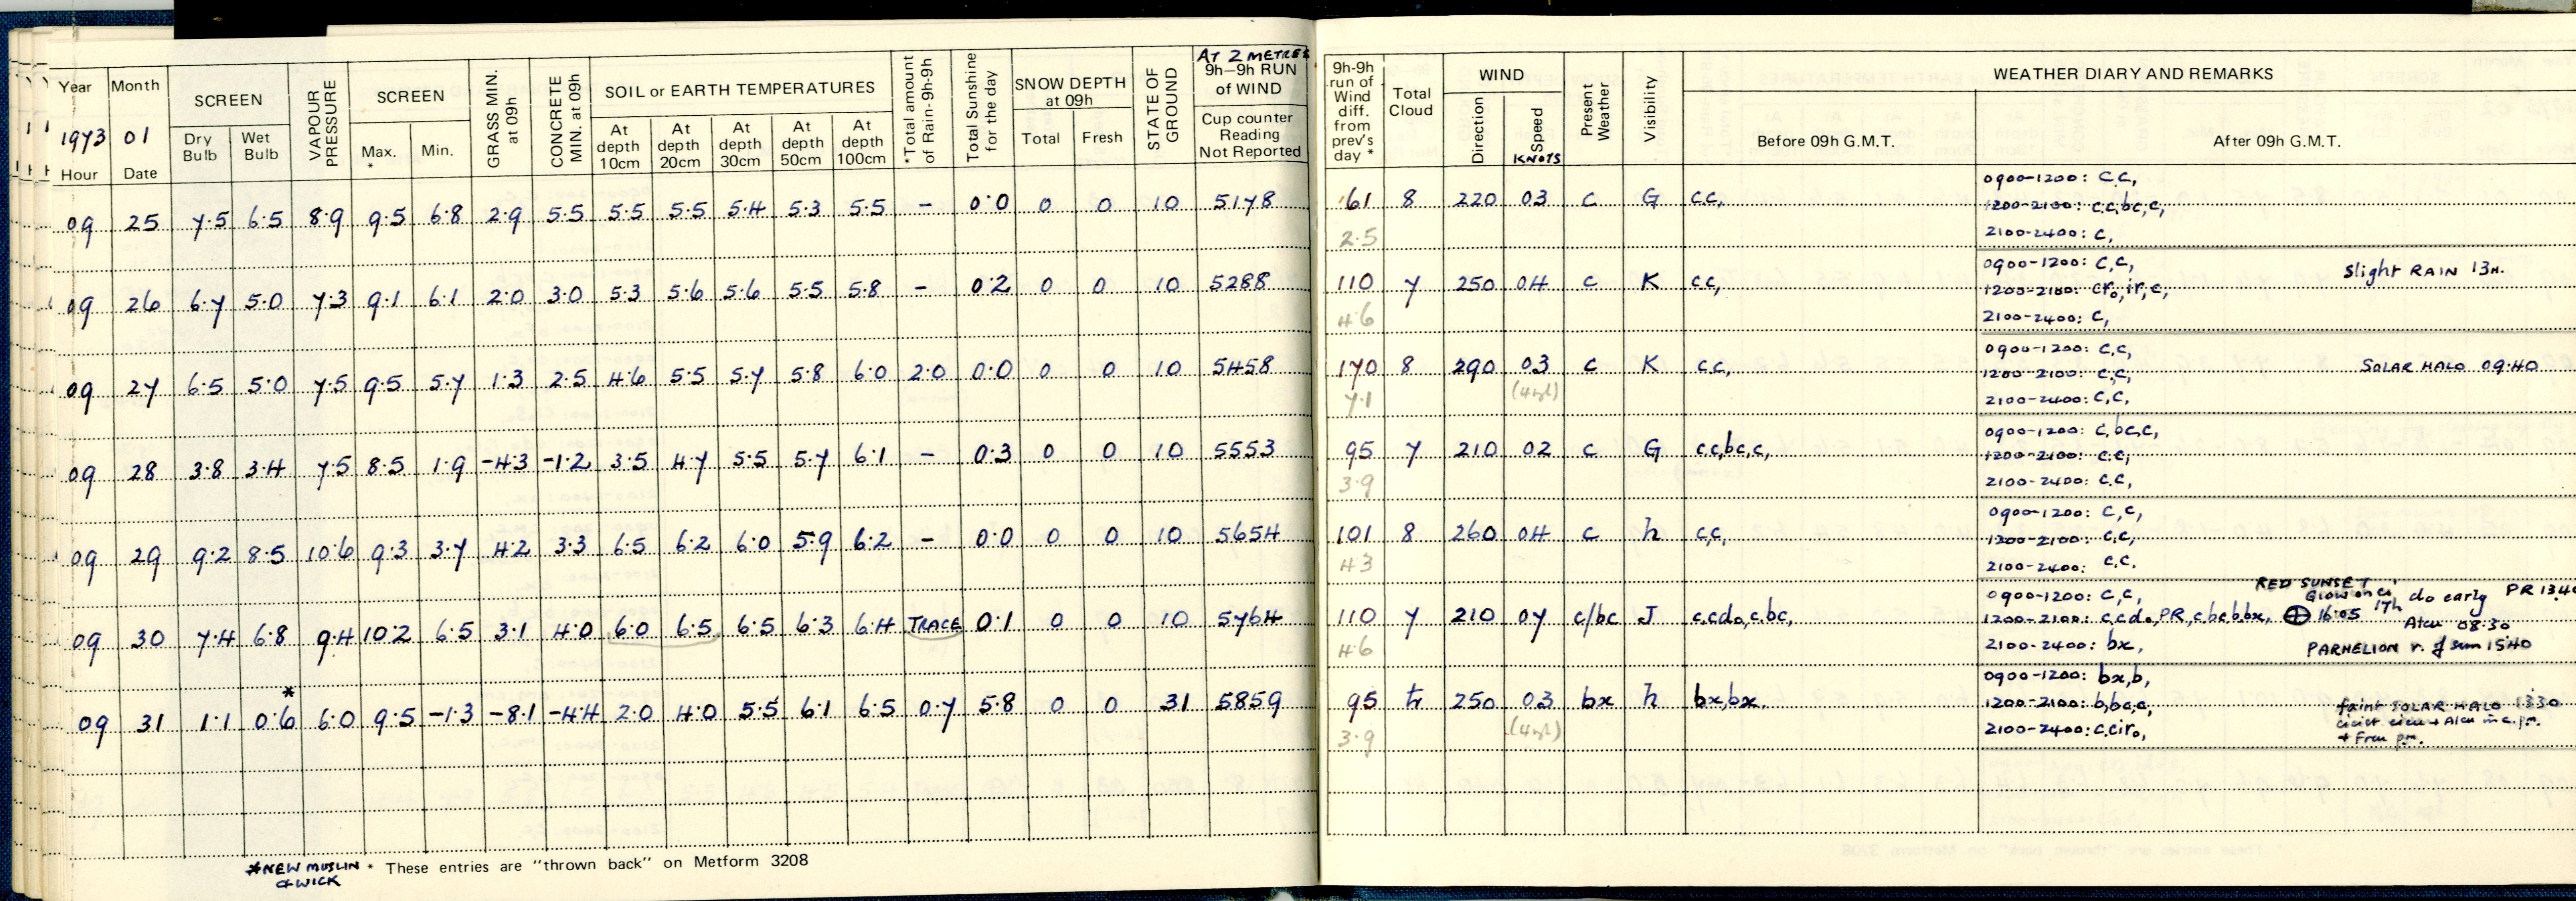 Year Month SCREEN VAPOUR PRESSURE SCREEN GRASS MIN. at 09h CONCRETE MIN. at 09h SOIL or EARTH TEMPERATURES *Total amount of Rain-9h-9h Total Sunshine for the day SNOW DEPTH at 09h STATE OF GROUND AT 2 METRES 9h–9h RUN of WIND
1973 01 Dry Bulb Wet Bulb Max. * Min. At depth 10cm At depth 20cm At depth 30cm At depth 50cm At depth 100cm Total Fresh Cup counter Reading Not Reported
Hour Date
09 25 7.5 6.5 8.9 9.5 6.8 2.9 5.5 5.5 5.5 5.4 5.3 5.5 – 0.0 0 0 10 5178
09 26 6.7 5.0 7.3 9.1 6.1 2.0 3.0 5.3 5.6 5.6 5.5 5.8 – 0.2 0 0 10 5288
09 27 6.5 5.0 7.5 9.5 5.7 1.3 2.5 4.6 5.5 5.7 5.8 6.0 2.0 0.0 0 0 10 5458
09 28 3.8 3.4 7.5 8.5 1.9 -4.3 -1.2 3.5 4.7 5.5 5.7 6.1 – 0.3 0 0 10 5553
09 29 9.2 8.5 10.6 9.3 3.7 4.2 3.3 6.5 6.2 6.0 5.9 6.2 – 0.0 0 0 10 5654
09 30 7.4 6.8 9.4 10.2 6.5 3.1 4.0 6.0 6.5 6.5 6.3 6.4 TRACE 0.1 0 0 10 5764
*
09 31 1.1 0.6 6.0 9.5 -1.3 -8.1 -4.4 2.0 4.0 5.5 6.1 6.5 0.7 5.8 0 0 31 5859
*NEW MUSLIN * These entries are "thrown back" on Metform 3208
& WICK
9h-9h run of Wind diff. from prev's day * Total Cloud WIND Present Weather Visibility WEATHER DIARY AND REMARKS
Direction Speed KNOTS Before 09h G.M.T. After 09h G.M.T.
0900-1200: c,c,
161 8 220 03 c G c.c, 1200-2100: c.c,bc,c,
2.5 2100-2400: c,
0900-1200: c,c, Slight RAIN 13H.
110 7 250 04 c K c.c, 1200-2100: cr₀,ir,c,
4.6 2100-2400: c,
0900-1200: c,c,
170 8 290 03 c K c.c, 1200-2100: c.c, SOLAR HALO 09.40
7.1 2100-2400: c,c,
0900-1200: c,bc,c,
95 7 210 02 c G c.c,bc,c, 1200-2100: c.c,
3.9 2100-2400: c.c,
0900-1200: c,c,
101 8 260 04 c h c.c, 1200-2100: c,c,
4.3 2100-2400: c.c.
RED SUNSET
0900-1200: c,c, Glow on ci 17h do early PR 1340
110 7 210 07 c/bc J c.cd₀,c,bc, 1200-2100: c,cd₀,PR,c,bc,b,bx, ⊕ 16.05 Atcu 08.30
4.6 2100-2400: bx, PARHELION r. of sun 1540
0900-1200: bx,b,
95 250 03 bx h bx,bx. 1200-2100: b,bc,c, faint SOLAR HALO 1330
3.9 2100-2400: c.cir₀, + Frcu pm.